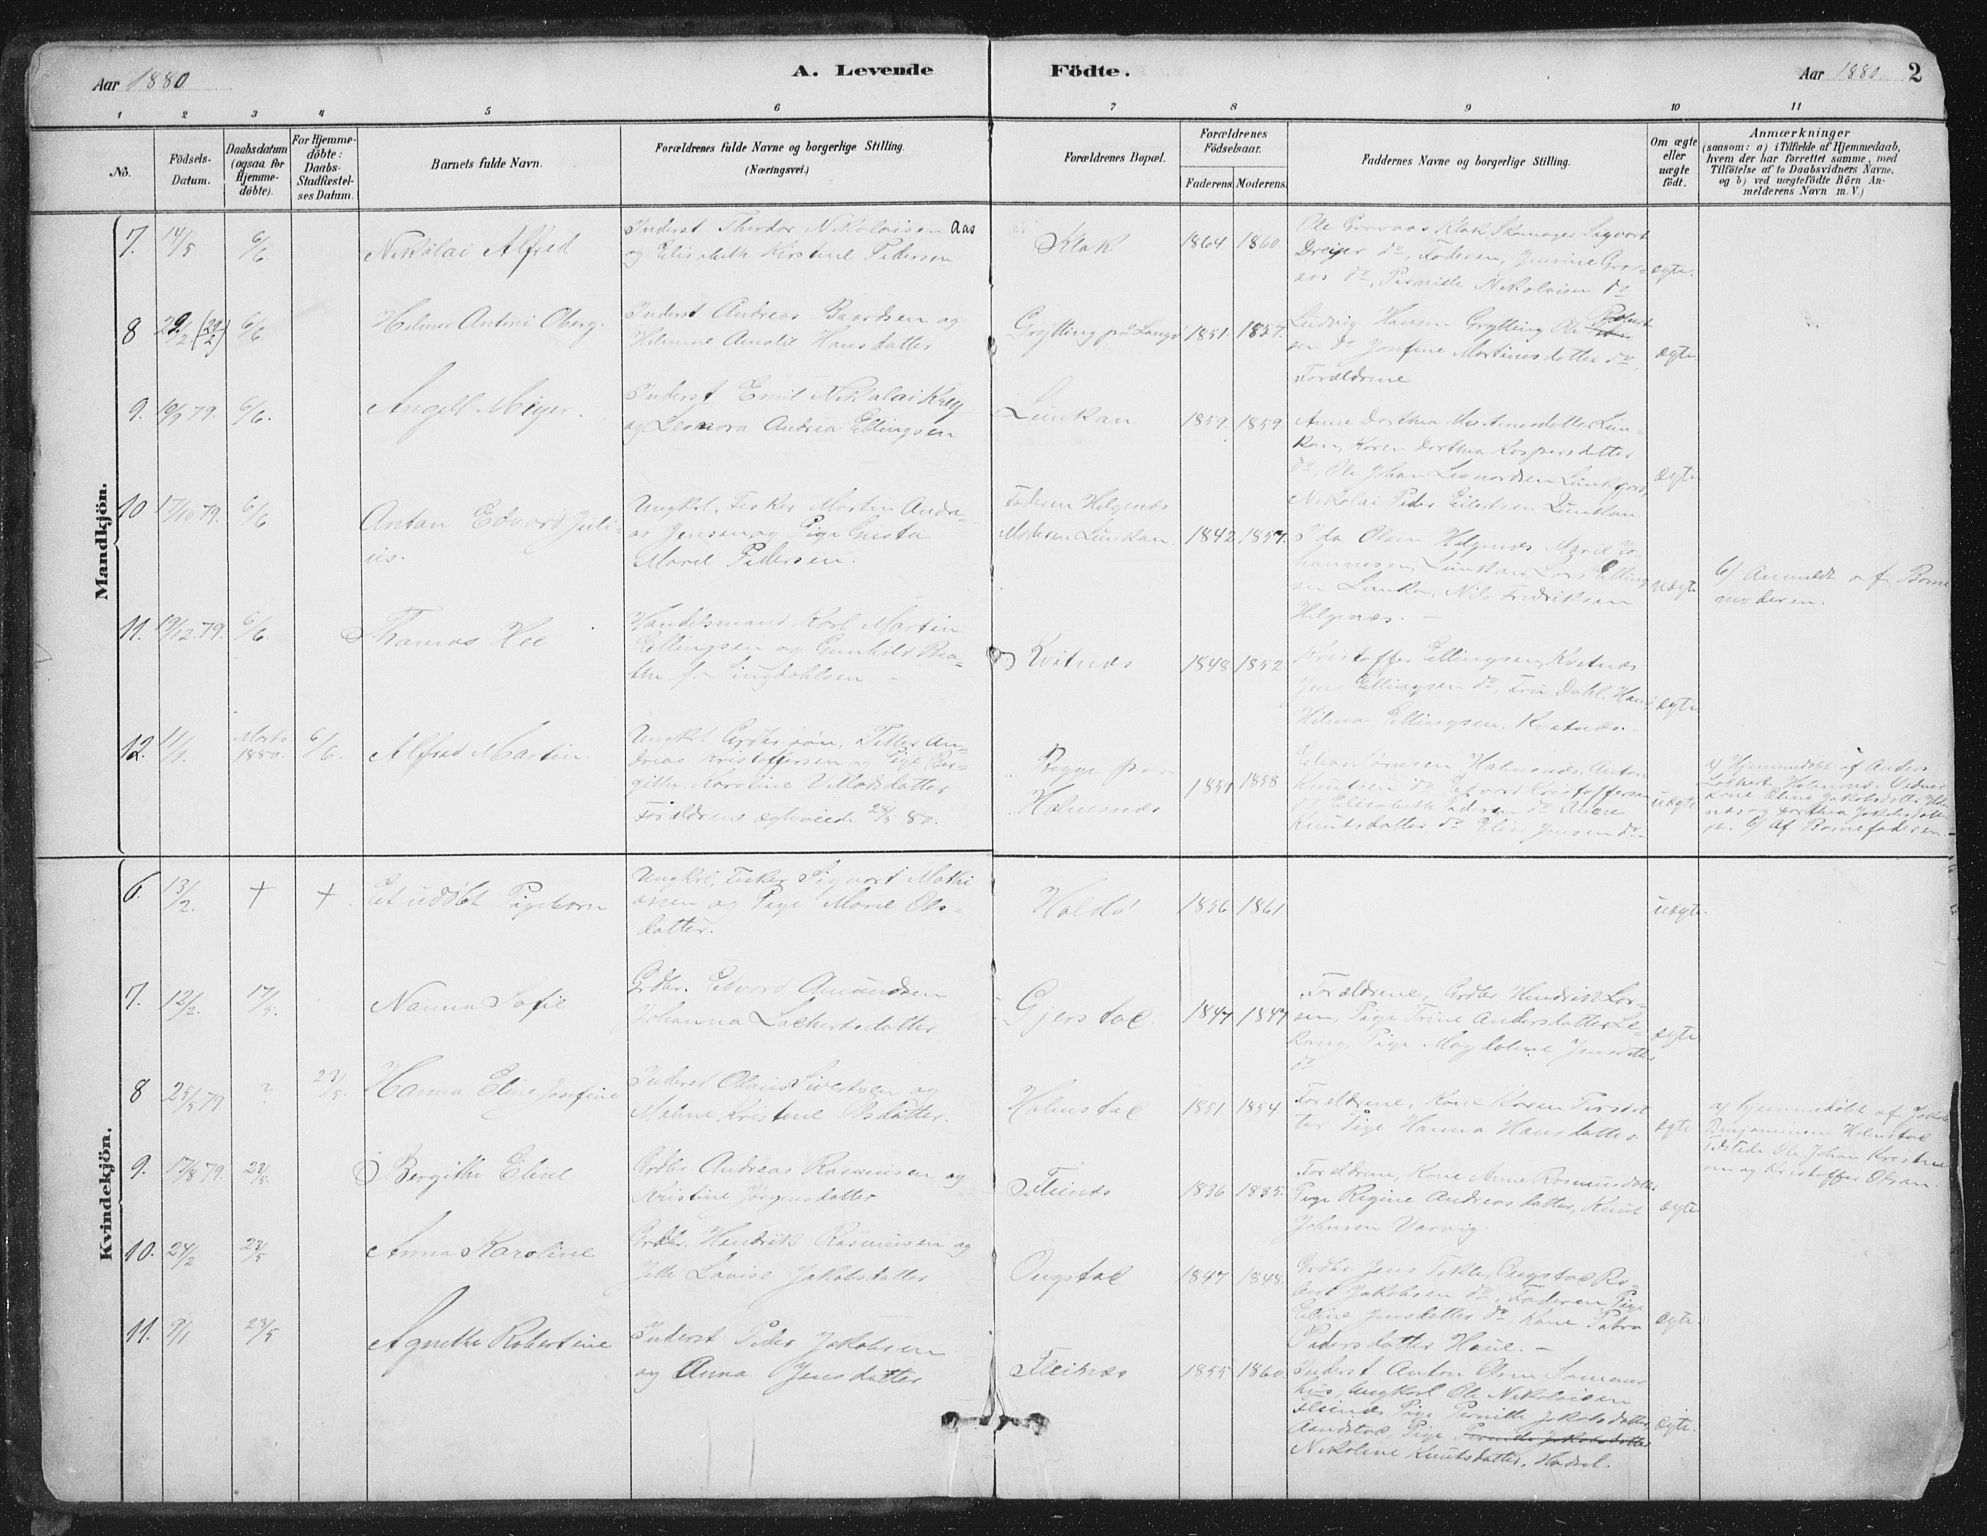 Aar 1880
A. Levende Födte.
Aar 1880
2
1 2 3 4 5 6 7 8 9 10 11
No.
Födsels-
Datum.
Daabsdatum
(ogsaa for
Hjemme-
döbte).
For Hjemme-
döbte:
Daabs-
Stadfæstel-
ses Datum.
Barnets fulde Navn.
Forældrenes fulde Navne og borgerlige Stilling.
(Næringsvei.)
Forældrenes Bopæl.
Forældrenes
Födselsaar.
Faderens. Moderens.
Faddernes Navne og borgerlige Stilling.
Om ægte
eller
uægte
födt.
Anmærkninger
(saasom: a) i Tilfælde af Hjemmedaab,
hvem der har forrettet samme, med
Tilföielse af to Daabsvidners Navne,
og b) ved uægtefödte Börn An-
melderens Navn m. V.)
Mandkjön.
7. 14/5 6/6
Nikolai Alfred
Inderst Theodor Nikolaisen Aas
og Elisabeth Kirstine Pedersen
Klak
1864 1860
Ole Grovaas Klak Skomager Sigvart
Dreyer do, Faderen, Jensine Grov-
aas do, Pernille Nikolaisen do
ægte.
8 6/6
Hilmar Antoni Oberg.
Inderst Andreas Baardsen og
Hilmine Amalie Hansdatter
Grytting på Langö
1851. 1857.
Ludvig Hansen Grytting Ole
sen do Josefine Martinusdatter do,
Forældrene
ægte
9. 10/9 79. 6/6.
Angell Meyer.
Inderst Emil Nikolai Krey
og Leonora Andrea Ellingsen
Lunkan
1859. 1859
Anne Dorthea
kan, Karen Dorthea Kaspersdatter
do, Ole Johan Leonardsen
Nikolai Peder Eilertsen Lunkan
ægte
10 17/10 79. 6/6
Anton Edvard Juli-
us.
Ungkrl, Fisker Morten Andre-
as Jensen og Pige Gusta
Marie Pedersen.
Faderen Helgenæs
Moderen Lunkan.
1842. 1857.
Ida Olsen Helgenæs Marie Jo-
hannesen, Lunkan, Lars Elling-
sen Lunkan, Nils Fredriksen
Helgenæs. -
uægte
b) Anmeldt af Barne
moderen.
11. 19/12. 79. 6/6
Thomas Hee
Handelsmand Karl Martin
Ellingsen og Gunhild Bea-
the f. -
Kvitnæs
1848. 1852.
Kristoffer Ellingsen, Kvitnæs
Jens Ellingsen do, Fru Dahl,
Hilma Ellingsen, Kvitnæs.
ægte
12. 11/1. Marts
1880. 6/6.
Alfred Martin.
Ungkrl Grdbr. søn, Petter An-
dreas Kristoffersen og Pige Ber-
githe Karoline Villadsdatter
Forældrene ægteviede 80.
Holmsnæs
1857 1858
Elias Hansen Holmsnæs, Anton
Knudsen do, Edvard Kristoffersen
do Elisabeth Pedersen do Anne
Knudsdatter do Elise Jensen do.
uægte
a) Hjemmedøbt af Anders
Lockert Holmsnæs Vidner
Kone Eline Jakobsdatter
b) Af Barnefaderen.
Kvindekjön.
6. 13/2. + +.
Et udøbt Pigebarn
Ungkrl, Fisker Sigvart Mathi
assen og Pige Marie Ols-
datter.
Haldö
1856 1861
uægte.
7. 12/2. 17/5.
Nanna Sofie
Grdbr. Edvard Amundsen
Johanna Lockertsdatter
Gjerstad
1847 1847
Forældrene, Grdbr Hendrik Lor-
sen, Pige Trine Andersdatter Le-
kang, Pige Magdalene Jensdatter
do
ægte
8 25/5 79. ? 23/5.
Hanna Eline Josefine
Inderst Olaus Sivertsen og
Maline Kristine Olsdatter.
Holmstad
1851 1854
Forældrene, Kone Karen
ter Pige Hanna Hansdatter
ægte
a) Hjemmedøbt af Jakob
Benjaminsen Holmstad
Tilstede Ole Johan Kristen
sen og Kristoffer Olsen.
9. 17/8 79. 23/5.
Bergithe Eline
Grdbr Andreas Rasmusen og
Kristine Jørgensdatter
Fleinæs
1836 1835.
Forældrene, Kone Anne Rasmusdatter
Pige Regine Andreasdatter, Knud
Johnsen Varvig.
ægte
10. 24/2 23/5
Anna Karoline
Grdbr. Hendrik Rasmusen og
Jette Lovise Jakobsdatter
Ongstad
1847 1848.
Grdbr Jens Falk, Ongstad Ro-
bert Jakobsen do, Faderen, Pige
Eline Jensdatter do, Kone Petra
Pedersdatter Haue. -
ægte.
11. 9/1 23/5
Agnethe Robertine
Inderst Peder Jakobsen
og Anna Jensdatter
Fleinæs
1855 1860.
Inderst Anton Olsen Sommar
hus, Ungkarl Ole Nikolaisen
Fleinæs Pige Pernille Jakobsdatter
Aandstad, Pige Pernille Jakobsdatter
Nikoline Knudsdatter, Hadsel.
ægte.